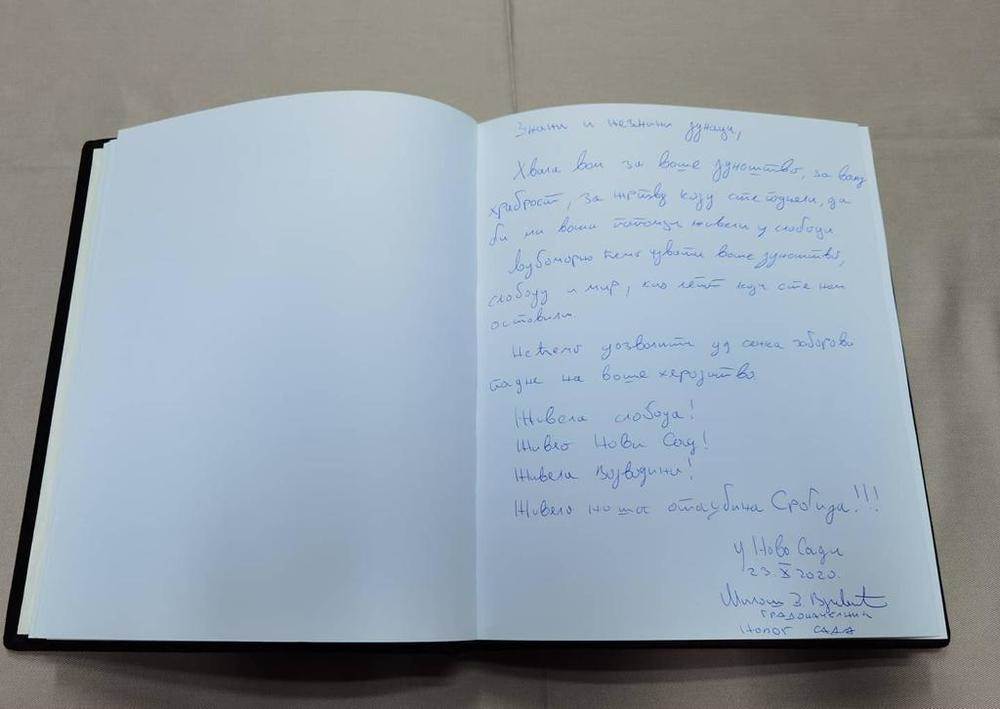 Знани и незнани јунаци,
Хвала вам за ваше јунаштво, за вашу
храброст, за жртву коју сте поднели, да
би ми ваши потомци живели у слободи
љубоморно ћемо чувати ваше јунаштво,
слободу и мир, као који сте нам
оставили.
Нећемо дозволити да сенка заборава
падне на ваше херојство.
Живела слобода!
Живео Нови Сад!
Живела Војводина!
Живела наша отаџбина Србија!!!
у Новом Саду
23. X 2020.
Милош Вучевић
ГРАДОНАЧЕЛНИК
НОВОГ САДА